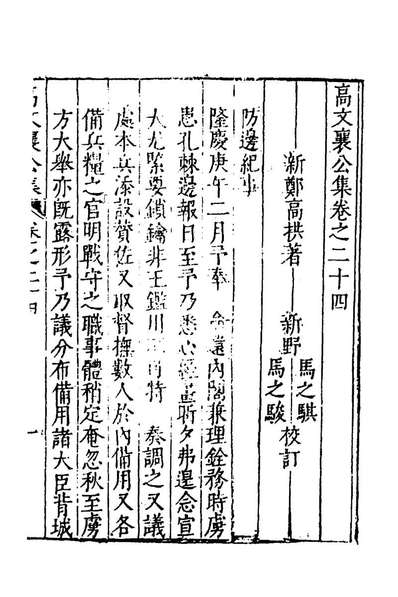 高文襄公集卷之二十四
新鄭高拱著 新野 馬之騏 馬之駿 校訂
防邊紀事
隆慶庚午二月予奉 命還內閣兼理銓務時虜
患孔棘邊報日至予乃悉心經畫昕夕弗遑念宣
大尤緊要鎖鑰非王鑑川 特 奏調之又議
處本兵添設贊佐又取督撫數人於內備用又各
備兵糧之官明戰守之職事體稍定奄忽秋至虜
方大舉亦旣露形予乃議分布備用諸大臣背城
高文襄公集 卷之二十四 一